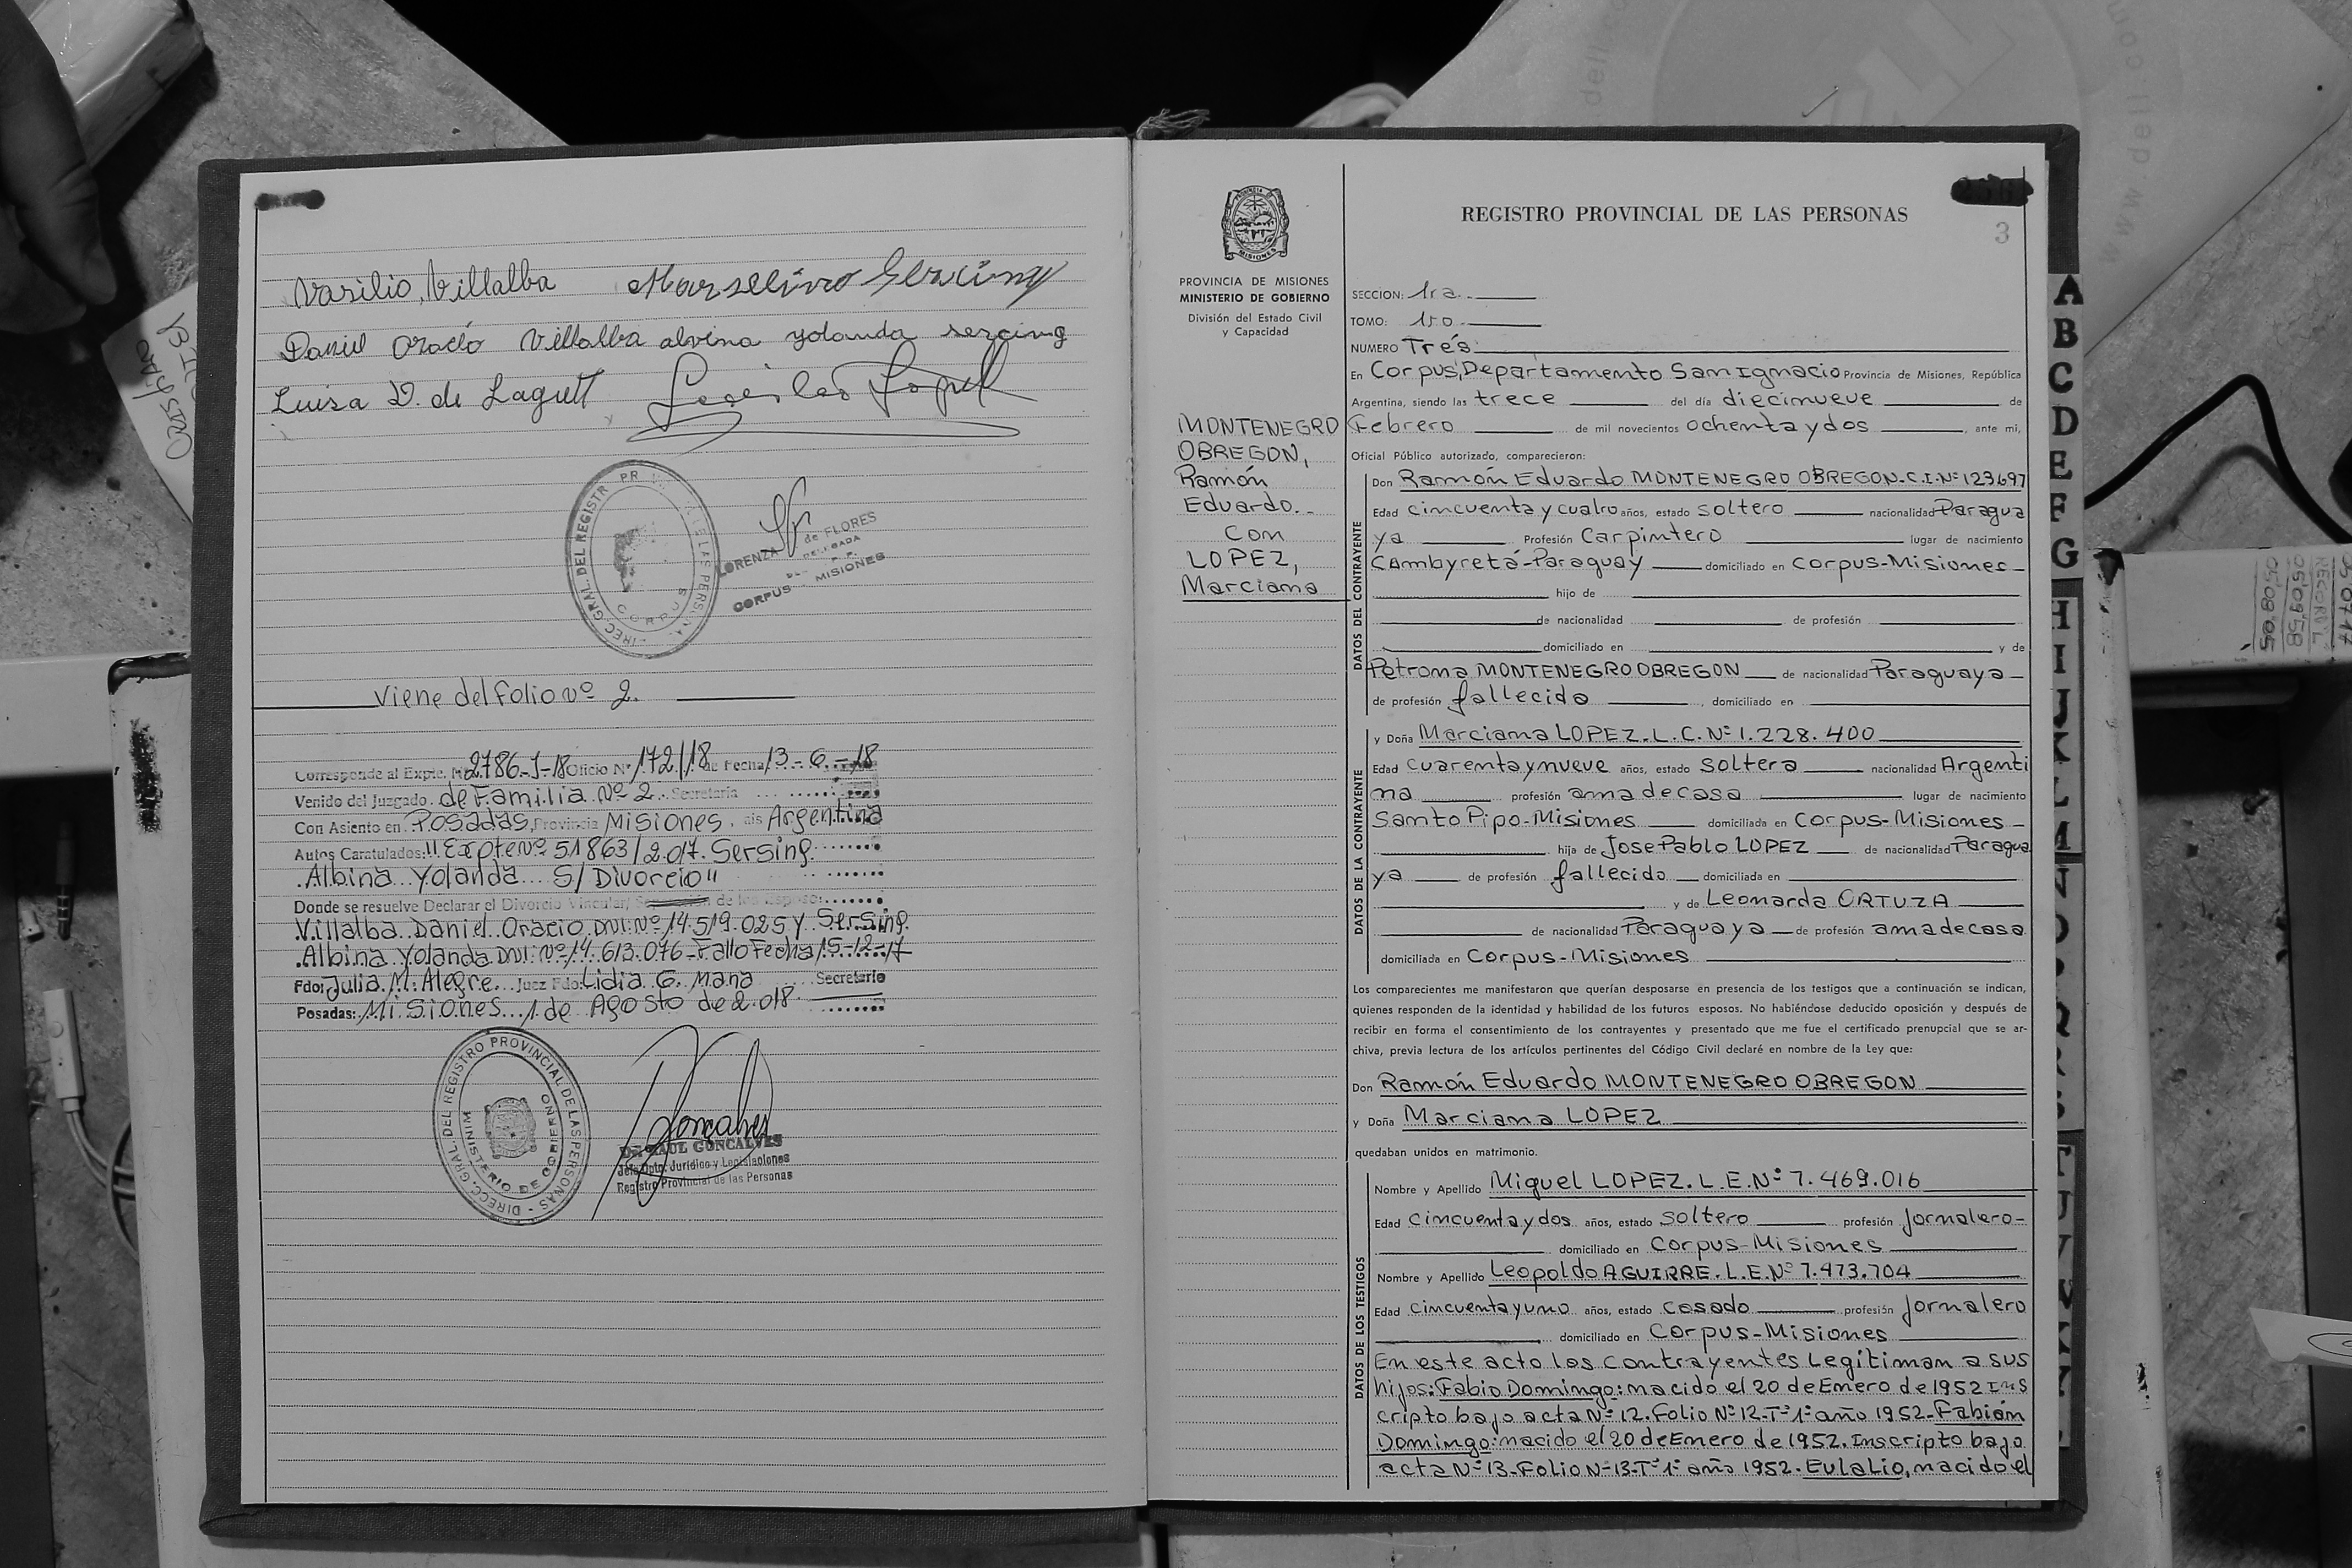 Vasilio, Villalba Marselino Sercing
Daniel Oracio Villalba alvina yolanda sercing
Luisa D. de Laguett
DIREC. GRAL. DEL REGISTR PR DE LAS PERSONAS
CORPUS
LORENZA de FLORES
DELEGADA
CORPUS MISIONES
Viene del folio Nº 2.
Corresponde al Expte. Nº 2786-J-18 Oficio Nº 172/18 de Fecha 13-6-18
Venido del Juzgado de Familia Nº 2. Secretaría
Con Asiento en Posadas, Provincia Misiones, ais Argentina
Autos Caratulados: "Expte Nº 51863/2.017. Sersing.
Albina Yolanda S/ Divorcio"
Donde se resuelve Declarar el Divorcio Vincular/ de los Esposos
Villalba Daniel Oracio DNI. Nº 14.519.025 y Sersing.
Albina Yolanda DNI. Nº 14.613.076-Fallo Fecha 15-12-17
Fdo: Julia. M. Alegre. Juez Fdo: Lidia G. Mana Secretario
Posadas: Misiones 1 de Agosto de 2.018.
DIRECC. GRAL. DEL REGISTRO PROVINCIAL DE LAS PERSONAS
MINISTERIO DE GOBIERNO
Goncalves
Dr. RAUL GONCALVES
Jefe Dpto. Jurídico y Legislaciones
Registro Provincial de las Personas
PROVINCIA DE MISIONES
MINISTERIO DE GOBIERNO
División del Estado Civil
y Capacidad
MONTENEGRO
OBREGON,
Ramón
Eduardo.-
Con
LOPEZ,
Marciana
REGISTRO PROVINCIAL DE LAS PERSONAS
3
SECCION: 1ra.
TOMO: 1ro.
NUMERO Tres
En Corpus, Departamento San Ignacio Provincia de Misiones, República
Argentina, siendo las trece del día diecinueve de
Febrero de mil novecientos ochenta y dos, ante mi,
Oficial Público autorizado, comparecieron:
DATOS DEL CONTRAYENTE
Don Ramón Eduardo MONTENEGRO OBREGON.C.I.Nº 123697
Edad cincuenta y cuatro años, estado soltero nacionalidad Paragua
ya Profesión Carpintero lugar de nacimiento
Cambyretá-Paraguay domiciliado en Corpus-Misiones
hijo de
de nacionalidad de profesión
domiciliado en y de
Petrona MONTENEGRO OBREGON de nacionalidad Paraguaya
de profesión fallecida, domiciliado en
DATOS DE LA CONTRAYENTE
y Doña Marciana LOPEZ. L.C. Nº 1.228.400
Edad cuarenta y nueve años, estado soltera nacionalidad Argenti
na profesión ama de casa lugar de nacimiento
Santo Pipo-Misiones domiciliada en Corpus-Misiones
hija de Jose Pablo LOPEZ de nacionalidad Paragua
ya de profesión fallecido domiciliada en
y de Leonarda ORTUZA
de nacionalidad Paraguaya de profesión ama de casa
domiciliada en Corpus-Misiones
Los comparecientes me manifestaron que querían desposarse en presencia de los testigos que a continuación se indican,
quienes responden de la identidad y habilidad de los futuros esposos. No habiéndose deducido oposición y después de
recibir en forma el consentimiento de los contrayentes y presentado que me fue el certificado prenupcial que se ar-
chiva, previa lectura de los artículos pertinentes del Código Civil declaré en nombre de la Ley que:
Don Ramón Eduardo MONTENEGRO OBREGON
y Doña Marciana LOPEZ
quedaban unidos en matrimonio.
DATOS DE LOS TESTIGOS
Nombre y Apellido Miguel LOPEZ. L.E. Nº 7.469.016
Edad cincuenta y dos años, estado soltero profesión Jornalero-
domiciliado en Corpus-Misiones
Nombre y Apellido Leopoldo AGUIRRE. L.E. Nº 7.473.704
Edad cincuenta y uno años, estado casado profesión Jornalero
domiciliado en Corpus-Misiones
En este acto los contrayentes Legitiman a sus
hijos: Fabio Domingo: nacido el 20 de Enero de 1952 Ins
cripto bajo acta Nº 12. Folio Nº 12-Tº 1º año 1952-Fabián
Domingo: nacido el 20 de Enero de 1952. Inscripto bajo
acta Nº 13-Folio Nº 13-Tº 1º año 1952. Eulalio, nacido el
A
B
C
D
E
F
G
H
I